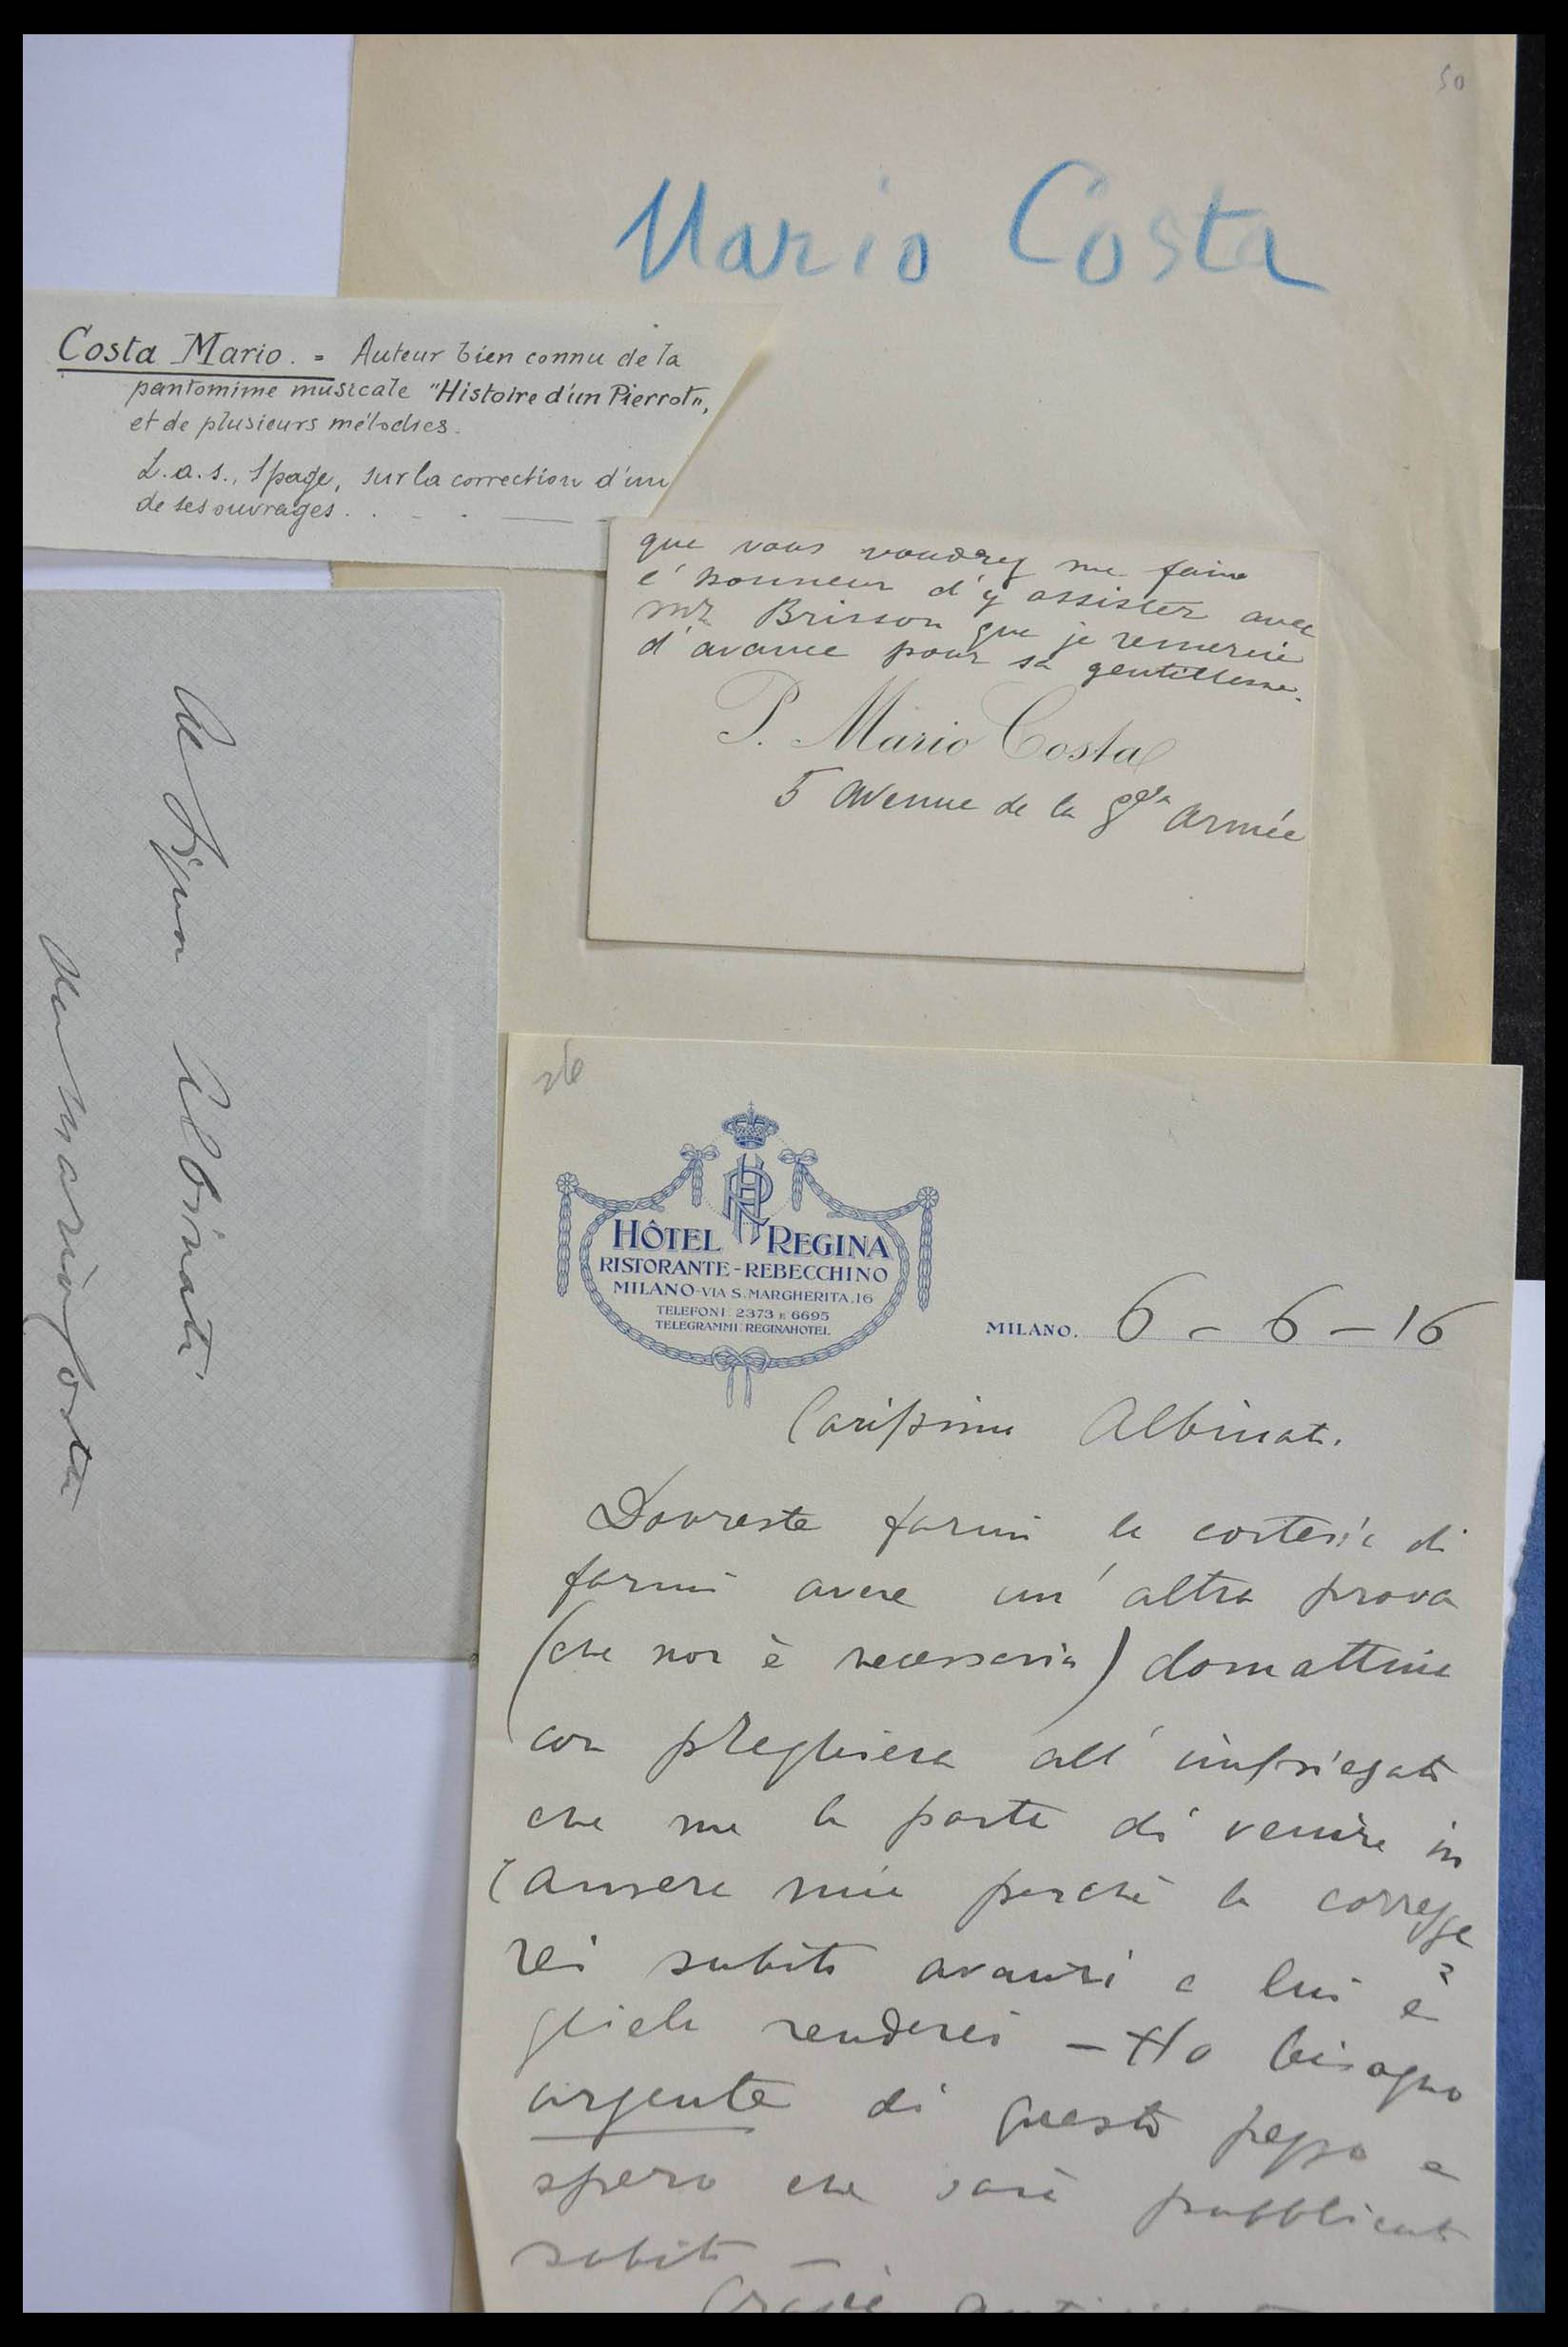 50
Mario Costa
Costa Mario. = Auteur bien connu de la
pantomime musicale "Histoire d'un Pierrot",
et de plusieurs mélodies.
L.a.s., 1 page, sur la correction d'un
de ses ouvrages.
que vous voudrez me faire
l'honneur d'y assister avec
Mr Brisson que je remercie
d'avance pour sa gentillesse.
P. Mario Costa
5 Avenue de la gde Armée
Albinati
Mario Costa
26
HR
HÔTEL REGINA
RISTORANTE-REBECCHINO
MILANO-VIA S. MARGHERITA, 16
TELEFONI 2373 E 6695
TELEGRAMMI REGINAHOTEL
MILANO. 6 - 6 - 16
Carissimo Albinati.
Dovreste farmi la cortesia di
farmi avere un'altra prova
(che non è necessaria) domattina
con preghiera all'impiegato
che me la porta di venire in
Camera mia perchè la corregge
rei subito avanti a lui e
gliela renderei - Ho bisogno
urgente di questo pezzo e
spero che sarà pubblicato
subito -
Grazie